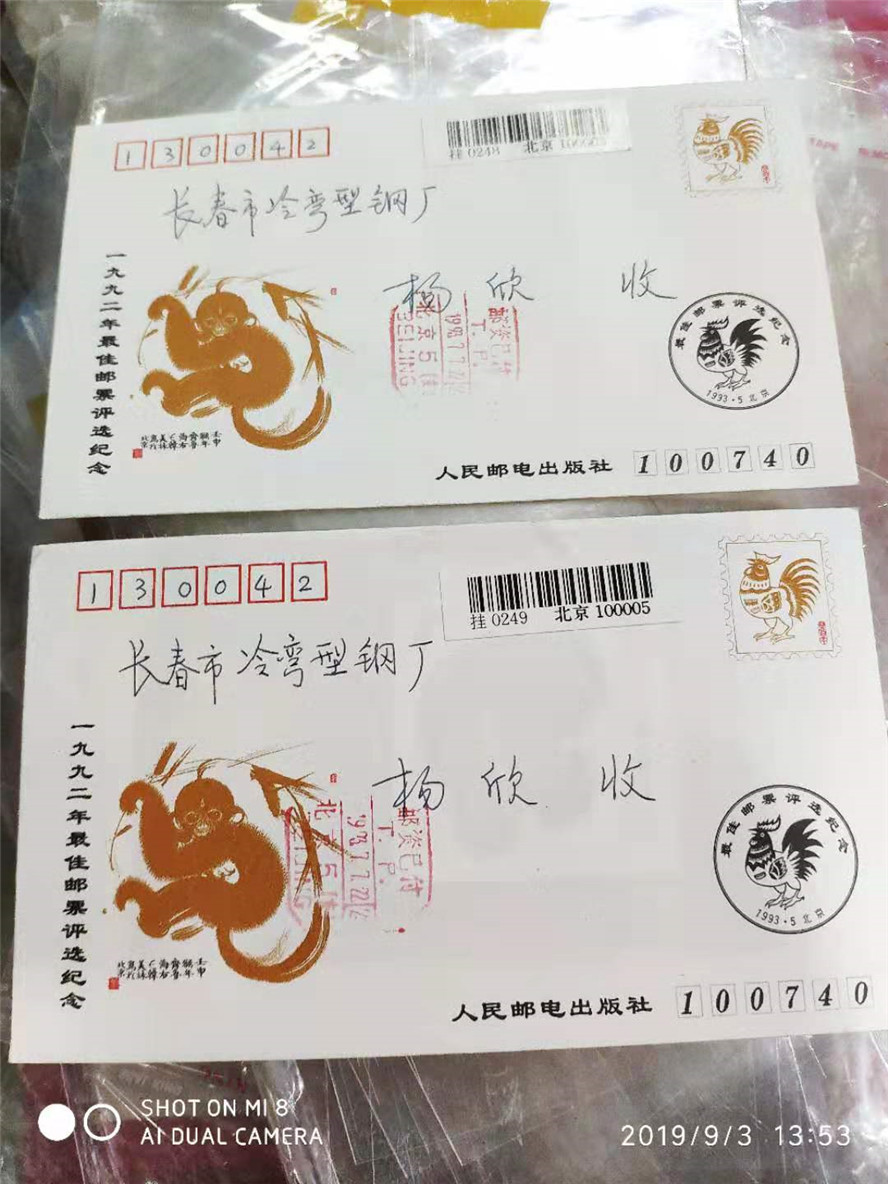 130042
挂 0248 北京 100005
长春市冷弯型钢厂
杨 欣 收
一九九二年最佳邮票评选纪念
邮资已付
T. P.
北京
BEIJING
最佳邮票评选纪念
1993·5 北京
人民邮电出版社 100740
130042
挂 0249 北京 100005
长春市冷弯型钢厂
杨 欣 收
一九九二年最佳邮票评选纪念
邮资已付
T. P.
北京
最佳邮票评选纪念
1993·5 北京
人民邮电出版社 100740
SHOT ON MI 8
AI DUAL CAMERA
2019/9/3 13:53